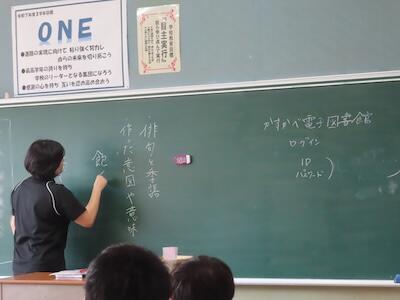 令和7年度3学年目標
ONE
●進路の実現に向けて 粘り強く努力し
自らの未来を切り拓こう
●最高学年の誇りを持ち
学校のリーダーとなる集団になろう
●感謝の心を持ち 互いを認め高め合おう
学校教育目標
『自主実行』
・俳句と季語
作った意図や意味
かすかべ電子図書館
ログイン
ID
パスワード